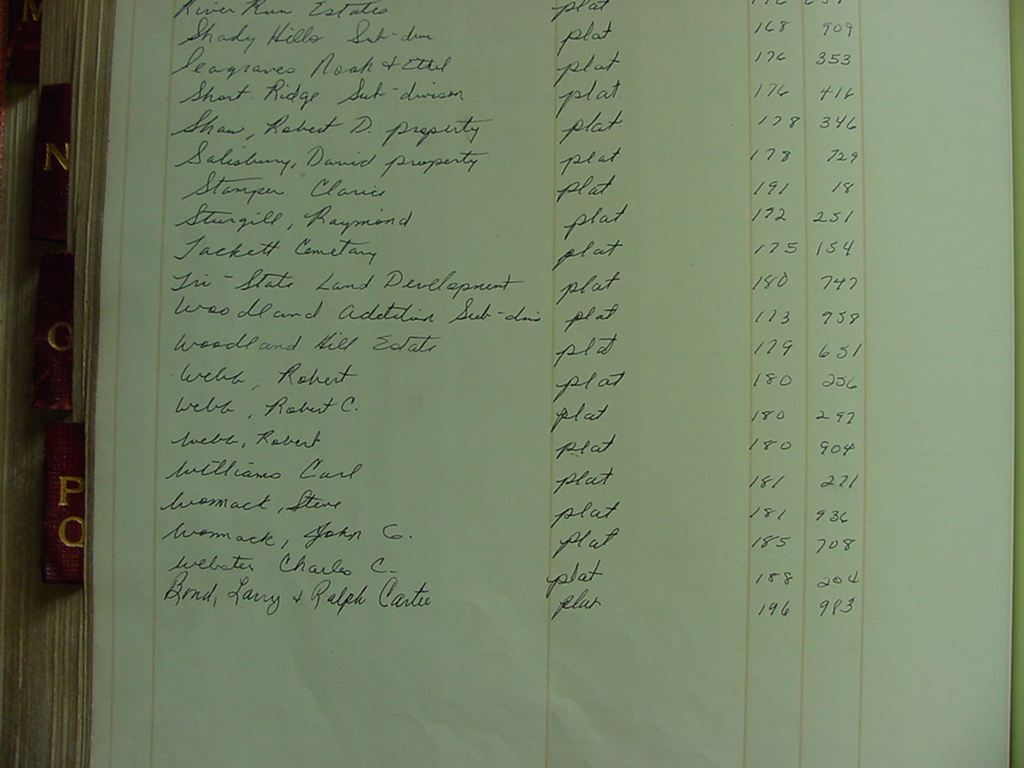 M
N
O
P
Q
River Run Estates plat
Shady Hills Sub-div plat 168 909
Seagraves Noah & Ethel plat 176 353
Short Ridge Sub-division plat 176 416
Shaw, Robert D. property plat 178 346
Salisbury, David property plat 178 729
Stamper Clarice plat 191 18
Sturgill, Raymond plat 172 251
Tackett Cemetary plat 175 154
Tri-State Land Development plat 180 747
Woodland Addition Sub-div plat 173 958
Woodland Hill Estates plat 179 651
Webb, Robert plat 180 256
Webb, Robert C. plat 180 297
Webb, Robert plat 180 904
Williams Carl plat 181 271
Womack, Steve plat 181 936
Womack, John C. plat 185 708
Webster Charles C. plat 188 204
Bond, Larry & Ralph Carter plat 196 983